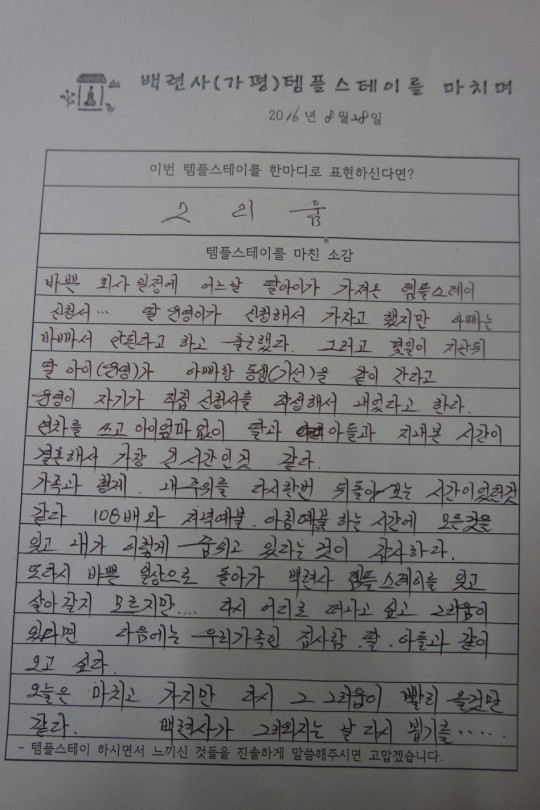 백련사(가평)템플스테이를 마치며
2016년 8월28일
이번 템플스테이를 한마디로 표현하신다면?
그 리 움
템플스테이를 마친 소감
바쁜 회사 일정에 어느날 딸아이가 가져온 템플스테이
신청서... 딸 은영이가 신청해서 가자고 했지만 아빠는
바빠서 안된다고 하고 출근했다. 그러고 몇일이 지난뒤
딸 아이(은영)가 아빠랑 동행( )을 같이 간라고
은영이 자기가 직접 신청서를 작성해서 내었다고 한다.
연차를 쓰고 아이엄마없이 딸과 아들과 지내본 시간이
결혼해서 가장 온 시간인것 같다.
가족과 형제. 내 주위를 다시한번 뒤돌아 보는 시간이었던것
같다. 108배와 저녁예불. 아침예불 하는 시간에 모든것을
잊고 내가 이렇게 있다는 것이 감사하다.
또다시 바쁜 일상으로 돌아가 백련사 템플스테이를 잊고
살아 갈지 모르지만.... 다시 어디로 떠나고 싶고 그리움이
있다면 다음에는 우리가족인 집사람. 딸. 아들과 같이
오고 싶다.
오늘은 마치고 가지만 다시 그 그리움이 빨리 올것만
같다. 백련사가 그리워지는 날 다시 뵙기를.....
- 템플스테이 하시면서 느끼신 것들을 진솔하게 말씀해주시면 고맙겠습니다.